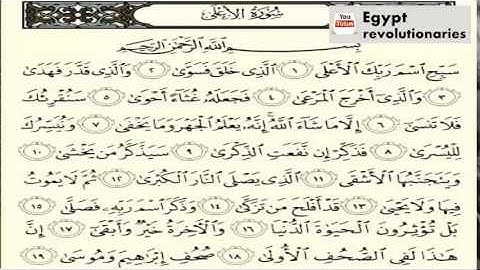 سُورَةُ الأَعْلَى
You Tube
Egypt
revolutionaries
بِسْمِ اللَّهِ الرَّحْمَٰنِ الرَّحِيمِ
سَبِّحِ اسْمَ رَبِّكَ الْأَعْلَى ١ الَّذِي خَلَقَ فَسَوَّىٰ ٢ وَالَّذِي قَدَّرَ فَهَدَىٰ
٣ وَالَّذِي أَخْرَجَ الْمَرْعَىٰ ٤ فَجَعَلَهُ غُثَاءً أَحْوَىٰ ٥ سَنُقْرِئُكَ
فَلَا تَنسَىٰ ٦ إِلَّا مَا شَاءَ اللَّهُ إِنَّهُ يَعْلَمُ الْجَهْرَ وَمَا يَخْفَىٰ ٧ وَنُيَسِّرُكَ
لِلْيُسْرَىٰ ٨ فَذَكِّرْ إِن نَّفَعَتِ الذِّكْرَىٰ ٩ سَيَذَّكَّرُ مَن يَخْشَىٰ ١٠
وَيَتَجَنَّبُهَا الْأَشْقَى ١١ الَّذِي يَصْلَى النَّارَ الْكُبْرَىٰ ١٢ ثُمَّ لَا يَمُوتُ
فِيهَا وَلَا يَحْيَىٰ ١٣ قَدْ أَفْلَحَ مَن تَزَكَّىٰ ١٤ وَذَكَرَ اسْمَ رَبِّهِ فَصَلَّىٰ ١٥
بَلْ تُؤْثِرُونَ الْحَيَوٰةَ الدُّنْيَا ١٦ وَالْآخِرَةُ خَيْرٌ وَأَبْقَىٰ ١٧ إِنَّ
هَٰذَا لَفِي الصُّحُفِ الْأُولَىٰ ١٨ صُحُفِ إِبْرَاهِيمَ وَمُوسَىٰ ١٩